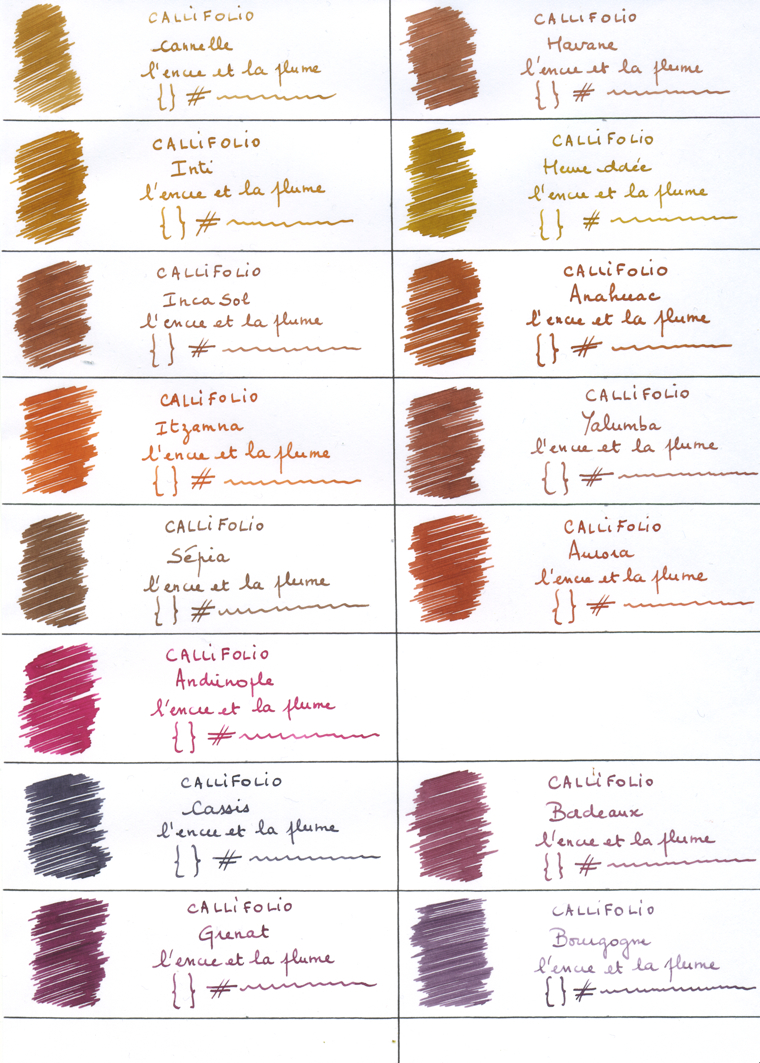 CALLiFOLiO
Cannelle
l'encre et la plume
{ } #
CALLiFOLiO
Havane
l'encre et la plume
{ } #
CALLiFOLiO
Inti
l'encre et la plume
{ } #
CALLiFOLiO
Heure dorée
l'encre et la plume
{ } #
CALLiFOLiO
Inca Sol
l'encre et la plume
{ } #
CALLiFOLiO
Anahuac
l'encre et la plume
{ } #
CALLiFOLiO
Itzamna
l'encre et la plume
{ } #
CALLiFOLiO
Yalumba
l'encre et la plume
{ } #
CALLiFOLiO
Sépia
l'encre et la plume
{ } #
CALLiFOLiO
Aurora
l'encre et la plume
{ } #
CALLiFOLiO
Andrinople
l'encre et la plume
{ } #
CALLiFOLiO
Cassis
l'encre et la plume
{ } #
CALLiFOLiO
Bordeaux
l'encre et la plume
{ } #
CALLiFOLiO
Grenat
l'encre et la plume
{ } #
CALLiFOLiO
Bourgogne
l'encre et la plume
{ } #